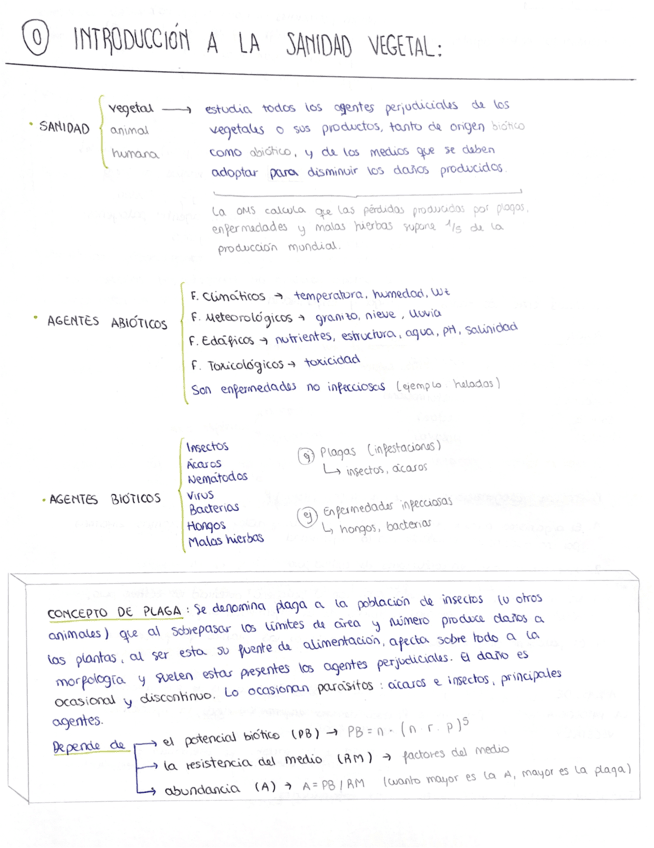 0 INTRODUCCIÓN A LA SANIDAD VEGETAL:
• SANIDAD
vegetal → estudia todos los agentes perjudiciales de los
animal
vegetales o sus productos, tanto de origen biótico
humana
como abiótico, y de los medios que se deben
adoptar para disminuir los daños producidos.
La OMS calcula que las pérdidas producidas por plagas,
enfermedades y malas hierbas supone 1/5 de la
producción mundial.
• AGENTES ABIÓTICOS
F. Climáticos → temperatura, humedad,
F. Meteorológicos → granizo, nieve, lluvia
F. Edáficos → nutrientes, estructura, agua, pH, salinidad
F. Toxicológicos → toxicidad
Son enfermedades no infecciosas (ejemplo heladas)
• AGENTES BIÓTICOS
Insectos
Ácaros
Nemátodos
Virus
Bacterias
Hongos
Malas hierbas
Plagas (infestaciones)
↳ insectos, ácaros
ej Enfermedades infecciosas
↳ hongos, bacterias
CONCEPTO DE PLAGA: Se denomina plaga a la población de insectos (u otros
animales) que al sobrepasar los límites de área y número produce daños a
las plantas, al ser esta su fuente de alimentación, afecta sobre todo a la
morfología y suelen estar presentes los agentes perjudiciales. El daño es
ocasional y discontinuo. Lo ocasionan parásitos: ácaros e insectos, principales
agentes.
Depende de → el potencial biótico (PB) → PB = n · (n · r · p)⁵
→ la resistencia del medio (RM) → factores del medio
→ abundancia (A) → A = PB / RM (cuanto mayor es la A, mayor es la plaga)